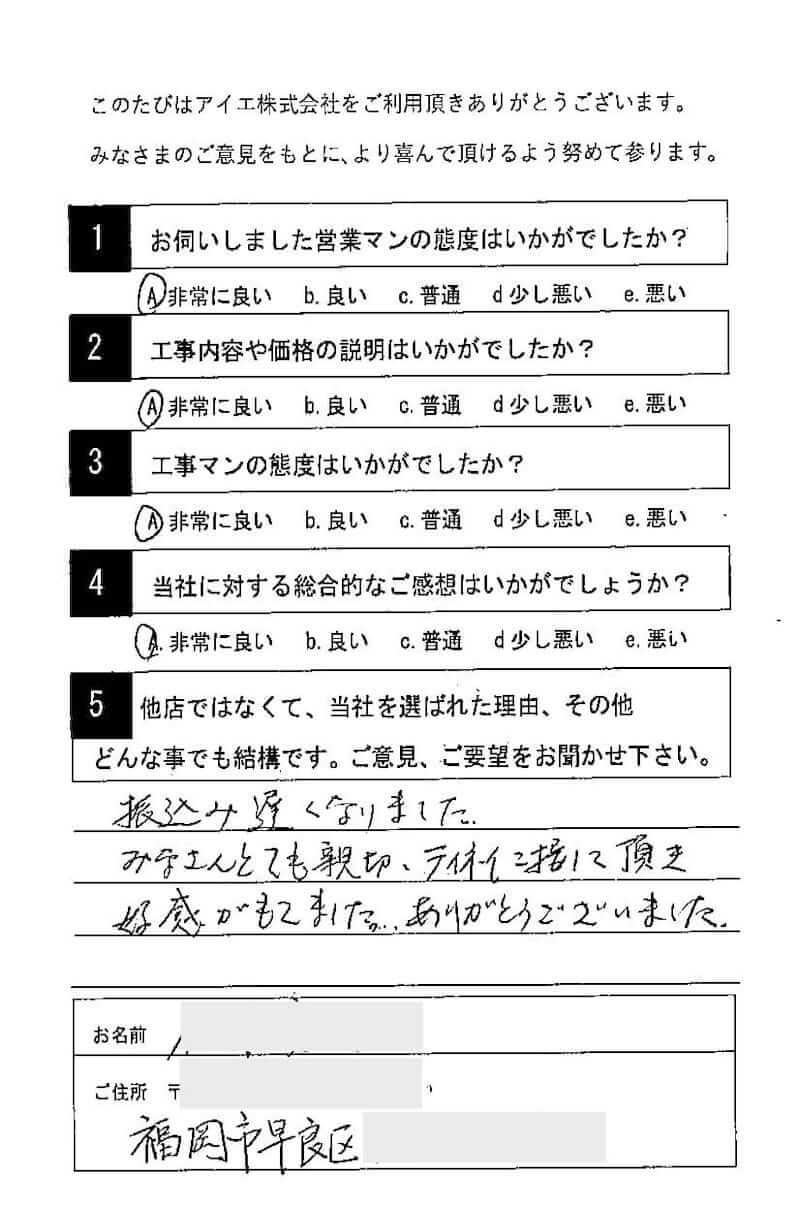 このたびはアイエ株式会社をご利用頂きありがとうございます。
みなさまのご意見をもとに、より喜んで頂けるよう努めて参ります。
1 お伺いしました営業マンの態度はいかがでしたか？
A 非常に良い b. 良い c. 普通 d 少し悪い e. 悪い
2 工事内容や価格の説明はいかがでしたか？
A 非常に良い b. 良い c. 普通 d 少し悪い e. 悪い
3 工事マンの態度はいかがでしたか？
A 非常に良い b. 良い c. 普通 d 少し悪い e. 悪い
4 当社に対する総合的なご感想はいかがでしょうか？
A. 非常に良い b. 良い c. 普通 d 少し悪い e. 悪い
5 他店ではなくて、当社を選ばれた理由、その他
どんな事でも結構です。ご意見、ご要望をお聞かせ下さい。
振込み遅くなりました。
みなさんとても親切、テイネイに接して頂き
好感がもてました。ありがとうございました。
お名前
ご住所 〒
福岡市早良区